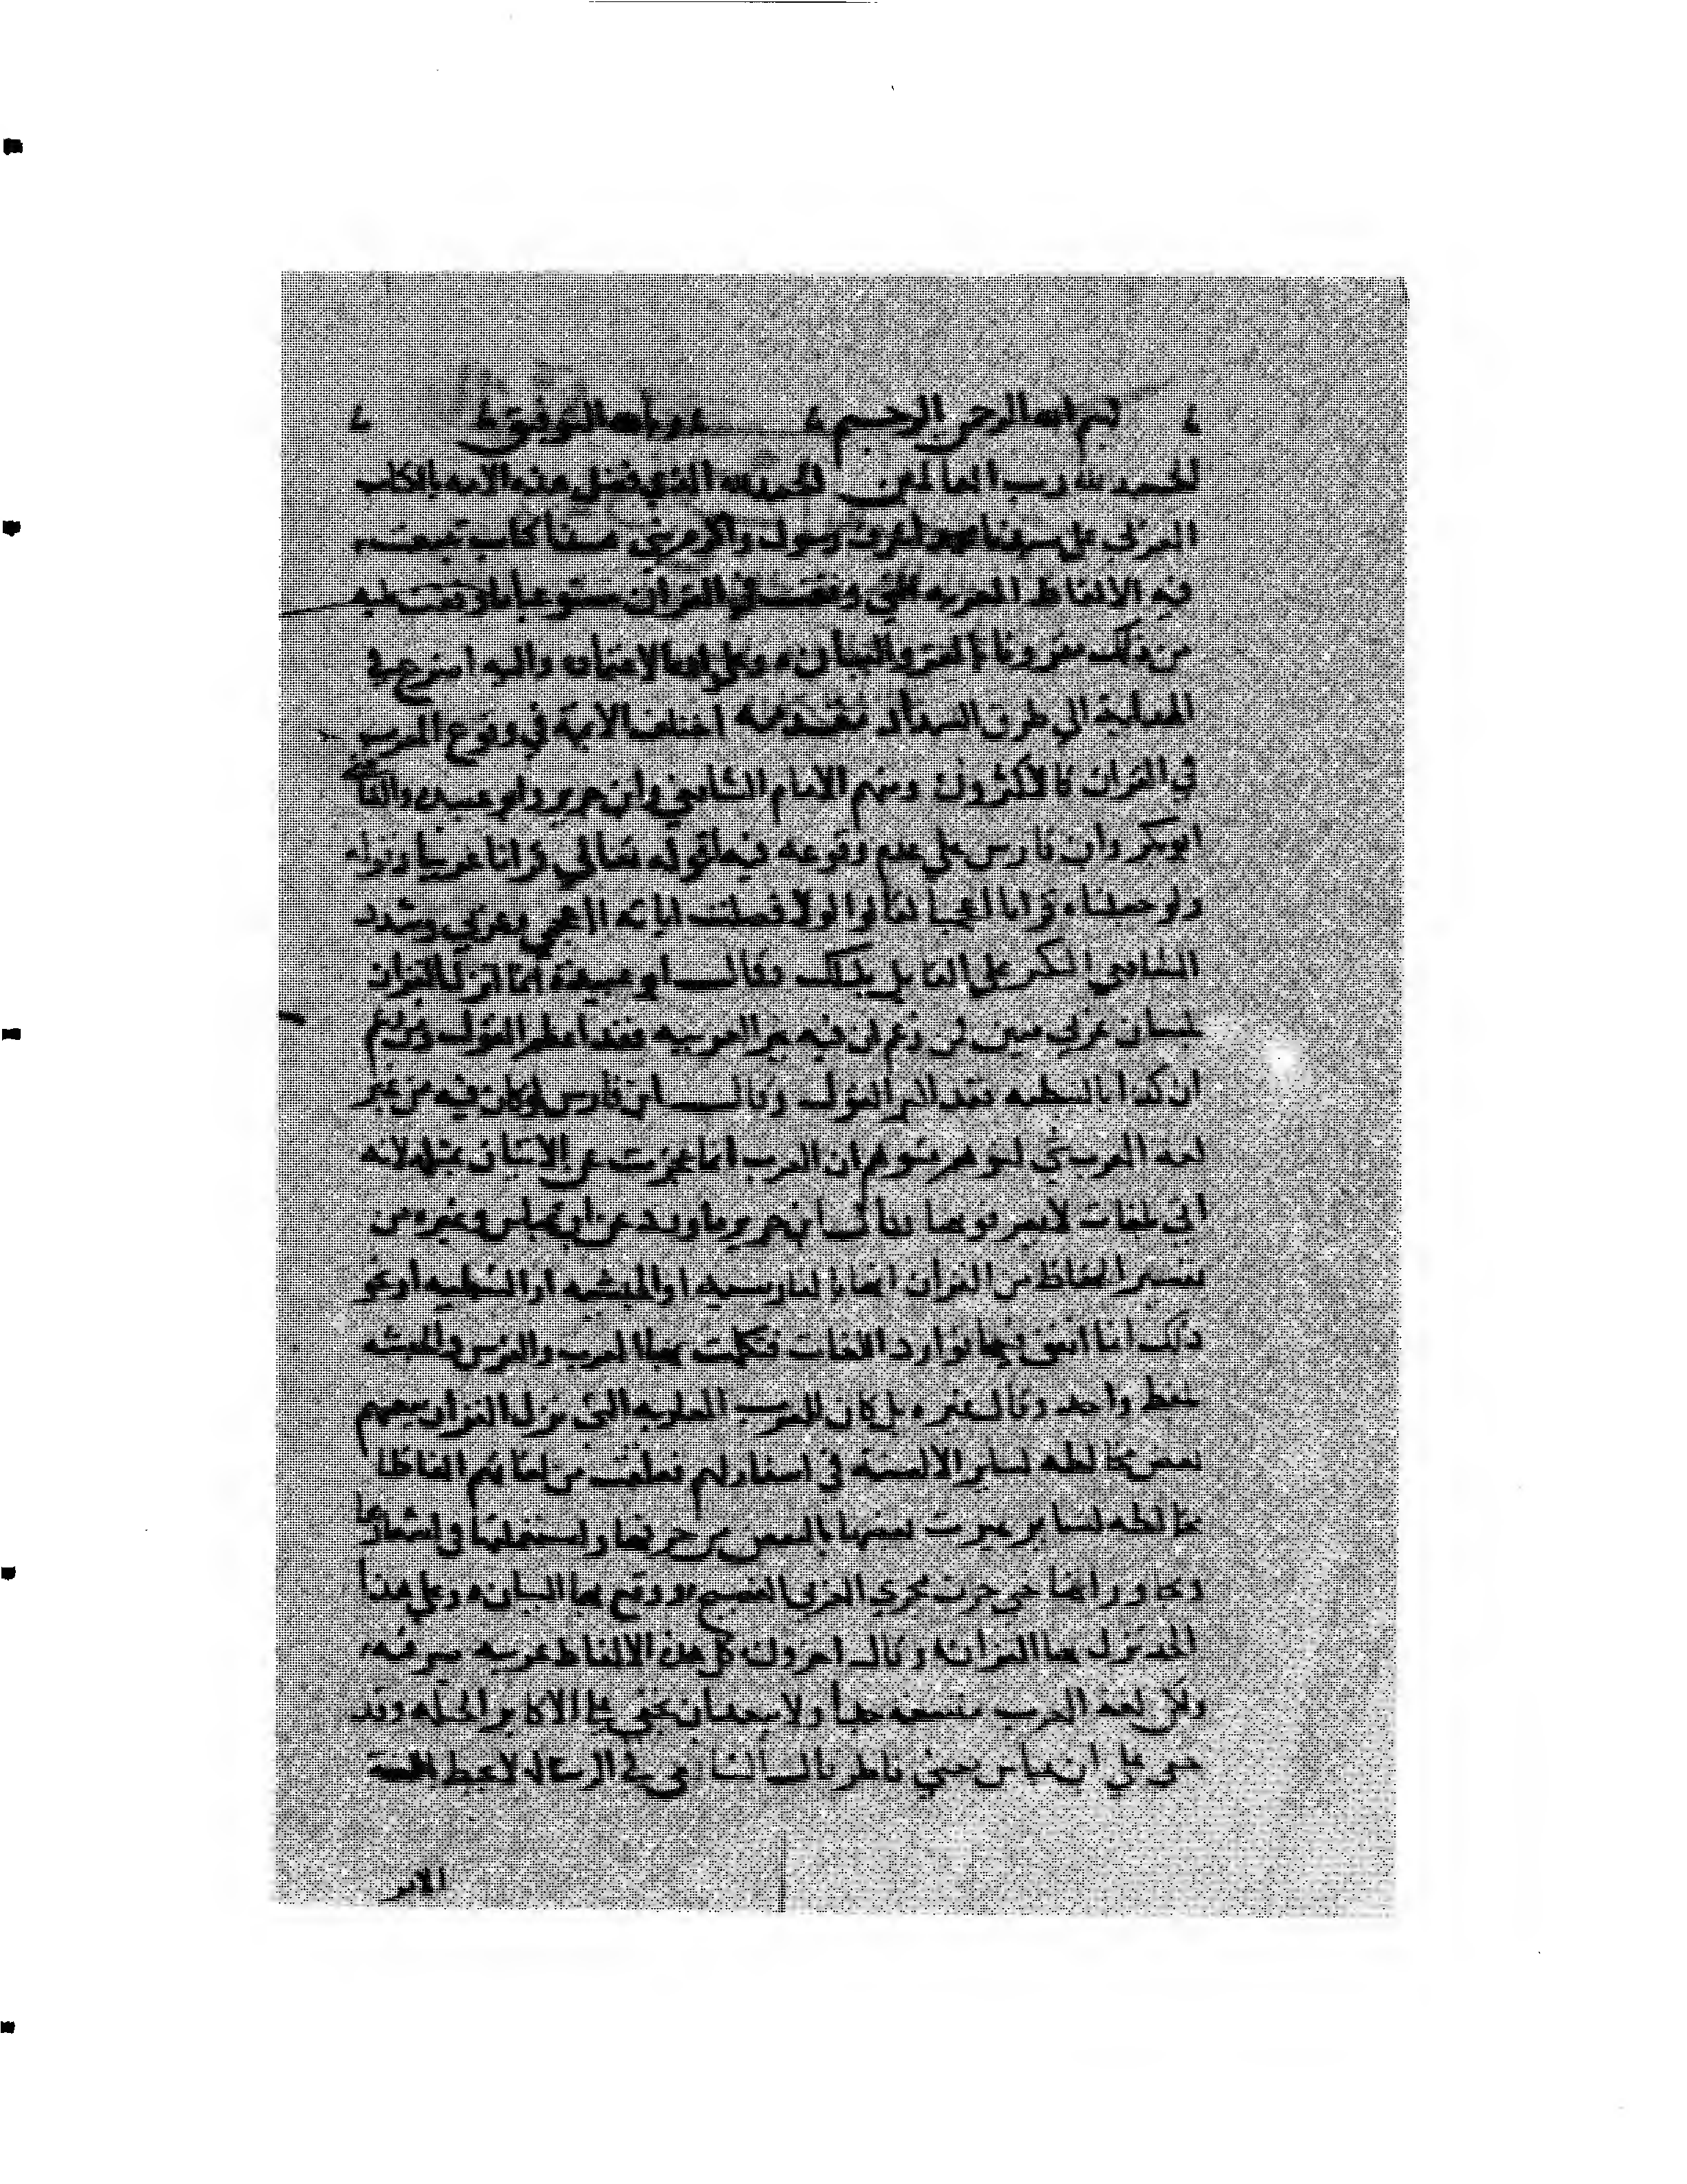 بسم الله الرحمن الرحيم وبالله التوفيق
الحمد لله رب العالمين الحمد لله الذي فضل هذه الامه بالكتاب
العربي على سيدنا محمد اشرف رسول واكرم نبي هذا كتاب تتبعت
فيه الالفاظ المعربه التي وقعت في القران مستوعبا ما وقفت عليه
من ذلك مقرونا بالعزو والبيان وعلى الله الاعتماد واليه اضرع في
الهداية الى طرق السداد مقدمه اختلف الايمة في وقوع المعرب
في القران فالاكثرون ومنهم الامام الشافعي وابن جرير وابو عبيده والقاضي
ابو بكر وابن فارس على عدم وقوعه فيه لقوله تعالي قرانا عربيا وقوله
ولو جعلناه قرانا اعجميا لقالوا لولا فصلت اياته ااعجمي وعربي وشدد
الشافعي النكير على القايل بذلك وقال ابو عبيدة انما انزل القران
بلسان عربي مبين فمن زعم ان فيه غير العربيه فقد اعظم القول ومن زعم
ان كذا بالنبطيه فقد اكبر القول وقال ابن فارس لو كان فيه من غير
لغة العرب شي لتوهم متوهم ان العرب انما عجزت عن الاتيان بمثله لانه
اتى بلغات لا يعرفونها وقال ابن جرير ما ورد عن ابن عباس وغيره من
تفسير الفاظ من القران انها بالفارسيه او الحبشيه او النبطيه او نحو
ذلك انما اتفق فيها توارد اللغات فتكلمت بها العرب والفرس والحبشه
بلفظ واحد وقال غيره بل كان للعرب العاربه التي نزل القران بلغتهم
بعض مخالطه لساير الالسنة في اسفارهم فعلقت من لغاتهم الفاظا
غيرت بعضها بالنقص من حروفها واستعملتها في اشعارها
ومحاوراتها حتى جرت مجري العربي الفصيح ووقع بها البيان وعلى هذا
الحد نزل بها القران وقال اخرون كل هذه الالفاظ عربيه صرفه
ولكن لغة العرب متسعه جدا ولا يبعد ان تخفى على الاكابر الجله وقد
خفي على ابن عباس معني فاطر قال الشافعي في الرساله لا يحيط باللغة
الا نبي